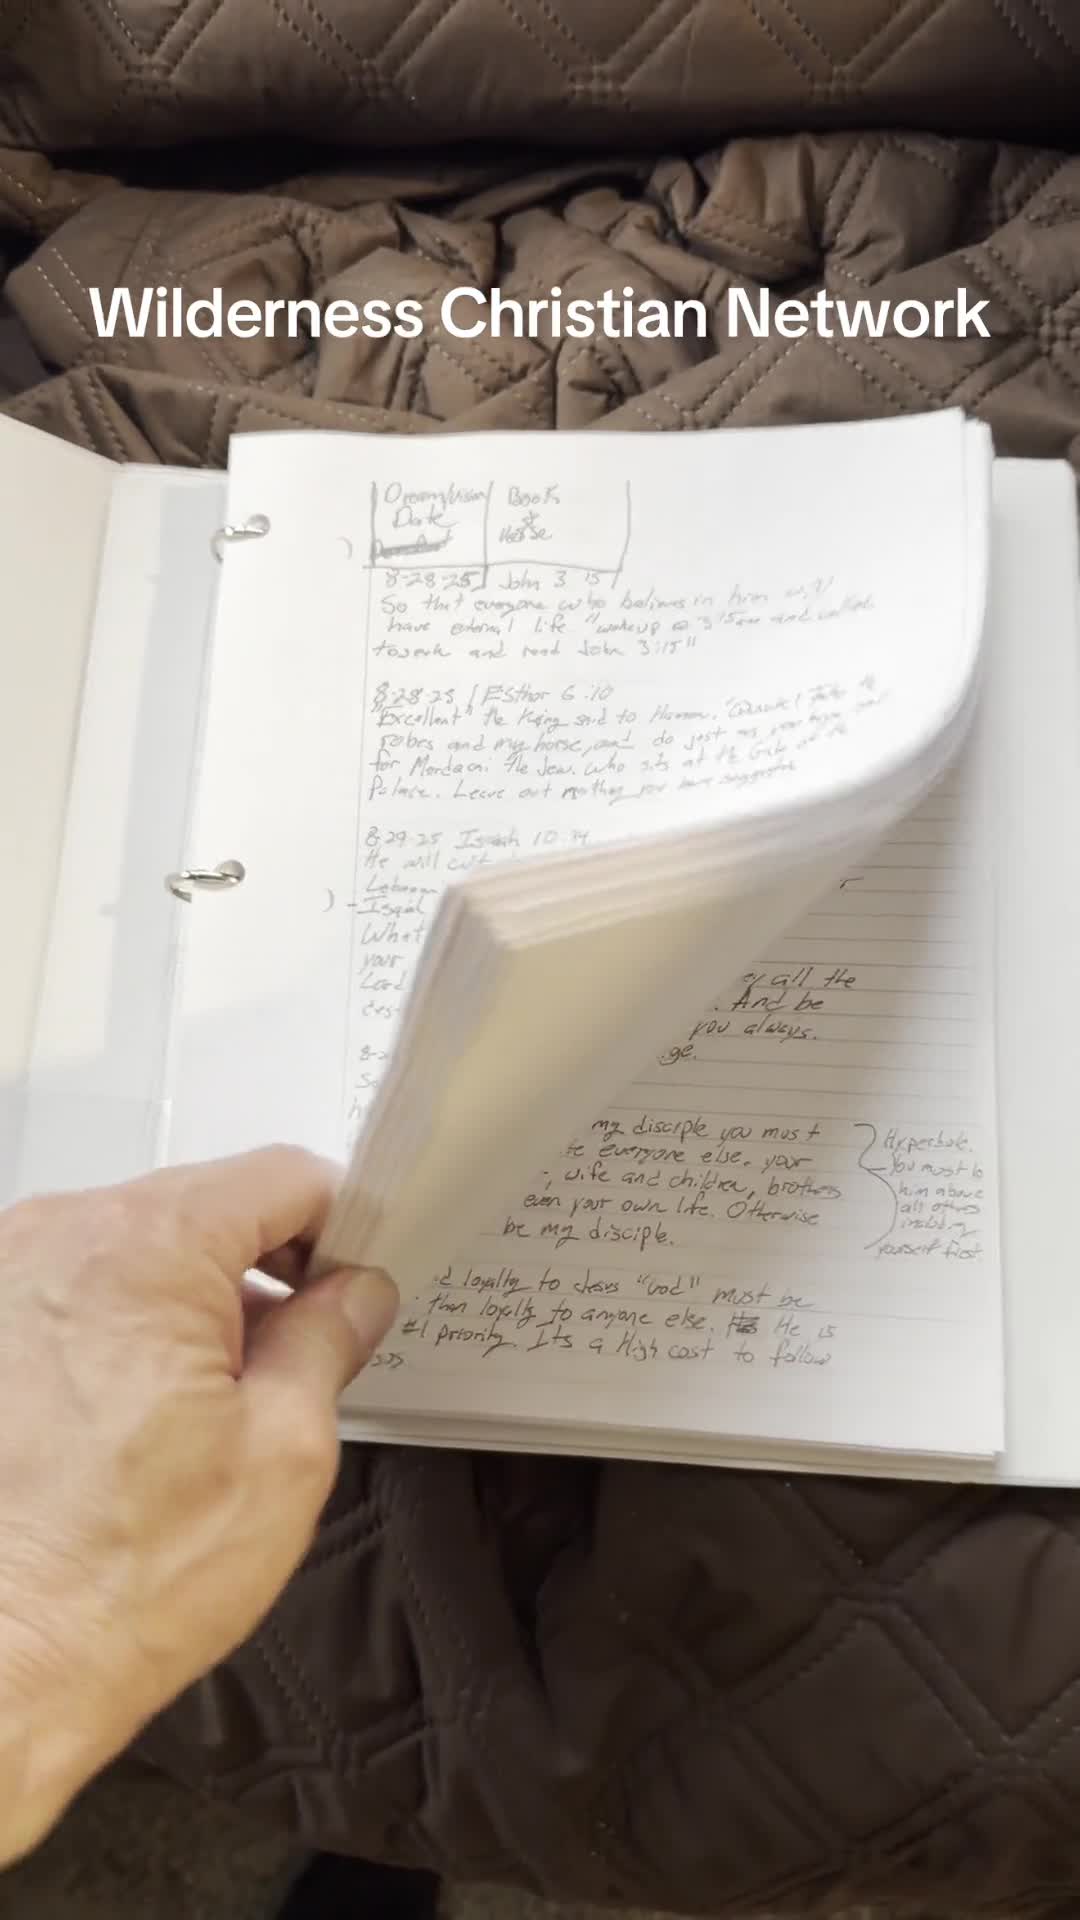 Wilderness Christian Network
Dream/Vision Book
Date &
Verse
8-28-25 John 3 15
So that everyone who believes in him will
have eternal life "wokeup @ 3:15am and
and read John 3:15"
8-28-25 Esther 6:10
"Excellent" the King said to Haman. "Quick! Take the
robes and my horse, and do just as you have said
for Mordacai the Jew. who sits at the Gate of the
Palace. Leave out nothing you have suggested
8-29-25 Isaiah 10
He will cut
Lebanon
What
your
Lord
8-2
So
all the
. And be
you always.
ge.
my disciple you must
te everyone else. your
, wife and children, brothers
even your own life. Otherwise
be my disciple.
Hyperbole.
You must
him above
all others
including
yourself first.
d loyalty to Jesus "God" must be
than loyalty to anyone else. He is
#1 priority. Its a High cost to follow